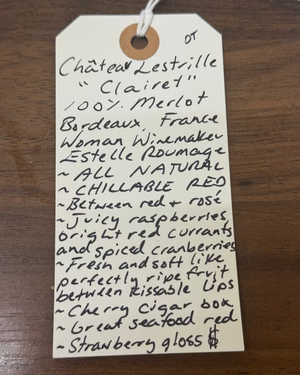 DT
Château Lestrille
"Clairet"
100% Merlot
Bordeaux, France
Woman Winemaker
Estelle Roumage
~ ALL NATURAL
~ CHILLABLE RED
~ Between red + rosé
~ Juicy raspberries,
bright red currants
and spiced cranberries
~ Fresh and soft like
perfectly ripe fruit
between kissable lips
~ Cherry cigar box
~ Great seafood red
~ Strawberry gloss $